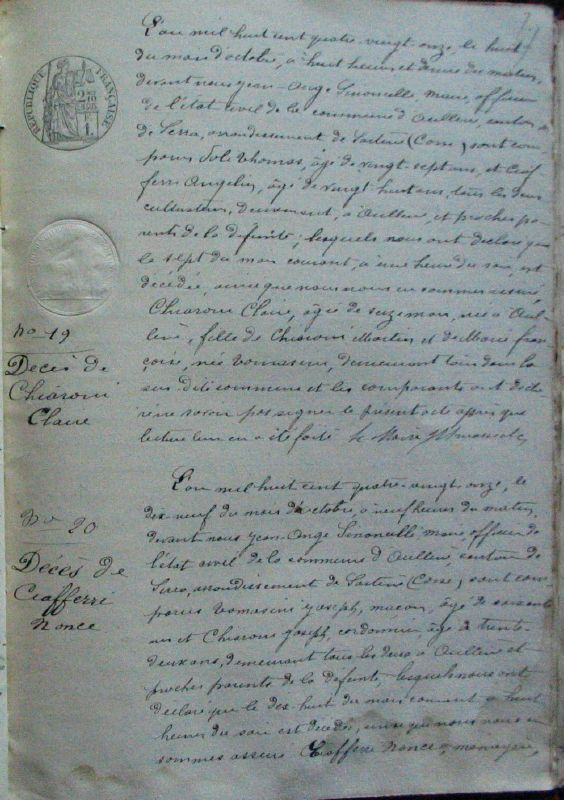 RÉPUBLIQUE FRANÇAISE
L'an mil huit cent quatre-vingt-onze, le huit
du mois d'octobre, à huit heures et demie du matin,
devant nous Jean-Ange maire, officier
de l'état civil de la commune d'Aullène, canton
de Serra, arrondissement de Sartène (Corse) sont com-
parus Thomas, âgé de vingt-sept ans, et Ciaf-
ferri Angelin, âgé de vingt huit ans, tous les deux
cultivateurs, demeurant, à Aullène, et proches pa-
rents de la défunte; lesquels nous ont déclaré que
le sept du mois courant, à une heure du soir, est
décédée, ainsi que nous nous en sommes assuré,
Chiaroni Claire, âgée de seize mois, née à Aul-
lène, fille de Chiaroni Martin et de Marie Fran-
çoise, née Vomasini, demeurant tous dans la
sus-dite commune et les comparants ont décla-
ré ne savoir pas signer le présent acte après que
lecture leur en a été faite Le Maire
No 19
Décès de
Chiaroni
Claire
L'an mil huit cent quatre-vingt-onze, le
dix-neuf du mois d'octobre, à neuf heures du matin,
devant nous Jean-Ange maire, officier de
l'état civil de la commune d'Aullène, canton de
Serra, arrondissement de Sartène (Corse) sont com-
parus Vomasini Joseph, maçon, âgé de soixante
ans et Chiaroni Joseph, cordonnier, âgé de trente-
deux ans, demeurant tous les deux à Aullène et
proches parents de la défunte, lesquels nous ont
déclaré que le dix-huit du mois courant à huit
heures du soir est décédée, ainsi que nous nous en
sommes assuré Ciafferri Nonce, ménagère,
No 20
Décès de
Ciafferri
Nonce